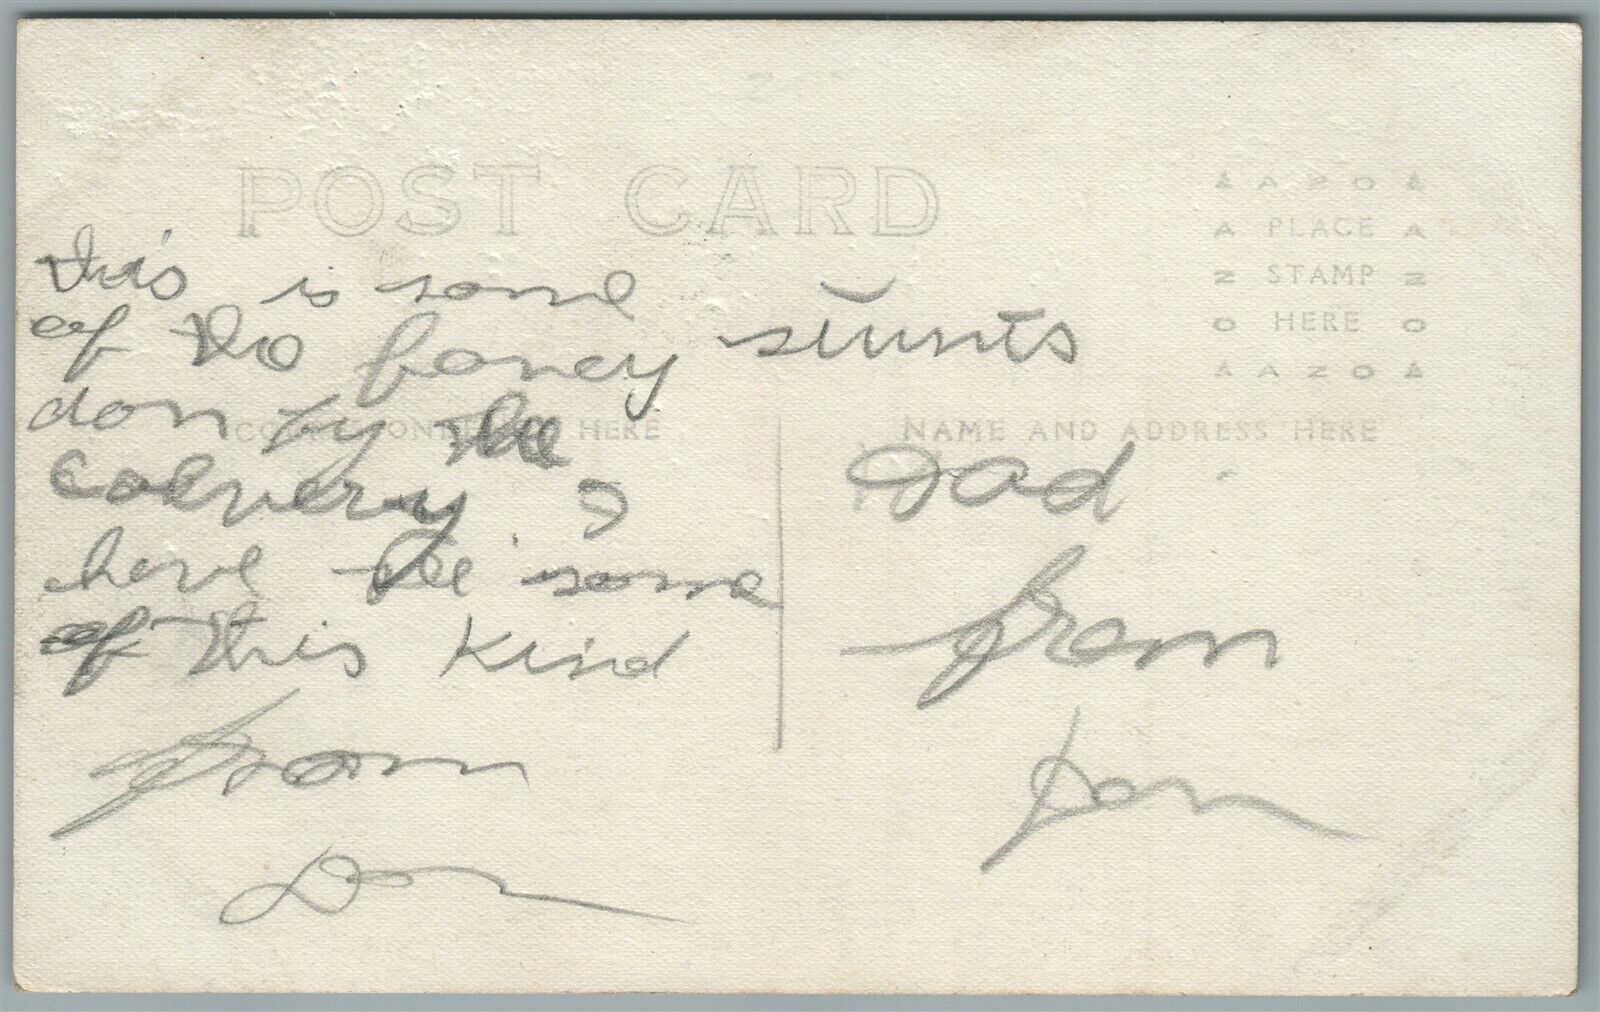 POST CARD
AZO
PLACE
STAMP
HERE
AZO
This is some
of the fancy stunts
don by the
CORRESPONDENCE HERE
NAME AND ADDRESS HERE
calvery I
have be some
of this kind
from
Don
Dad
from
Don